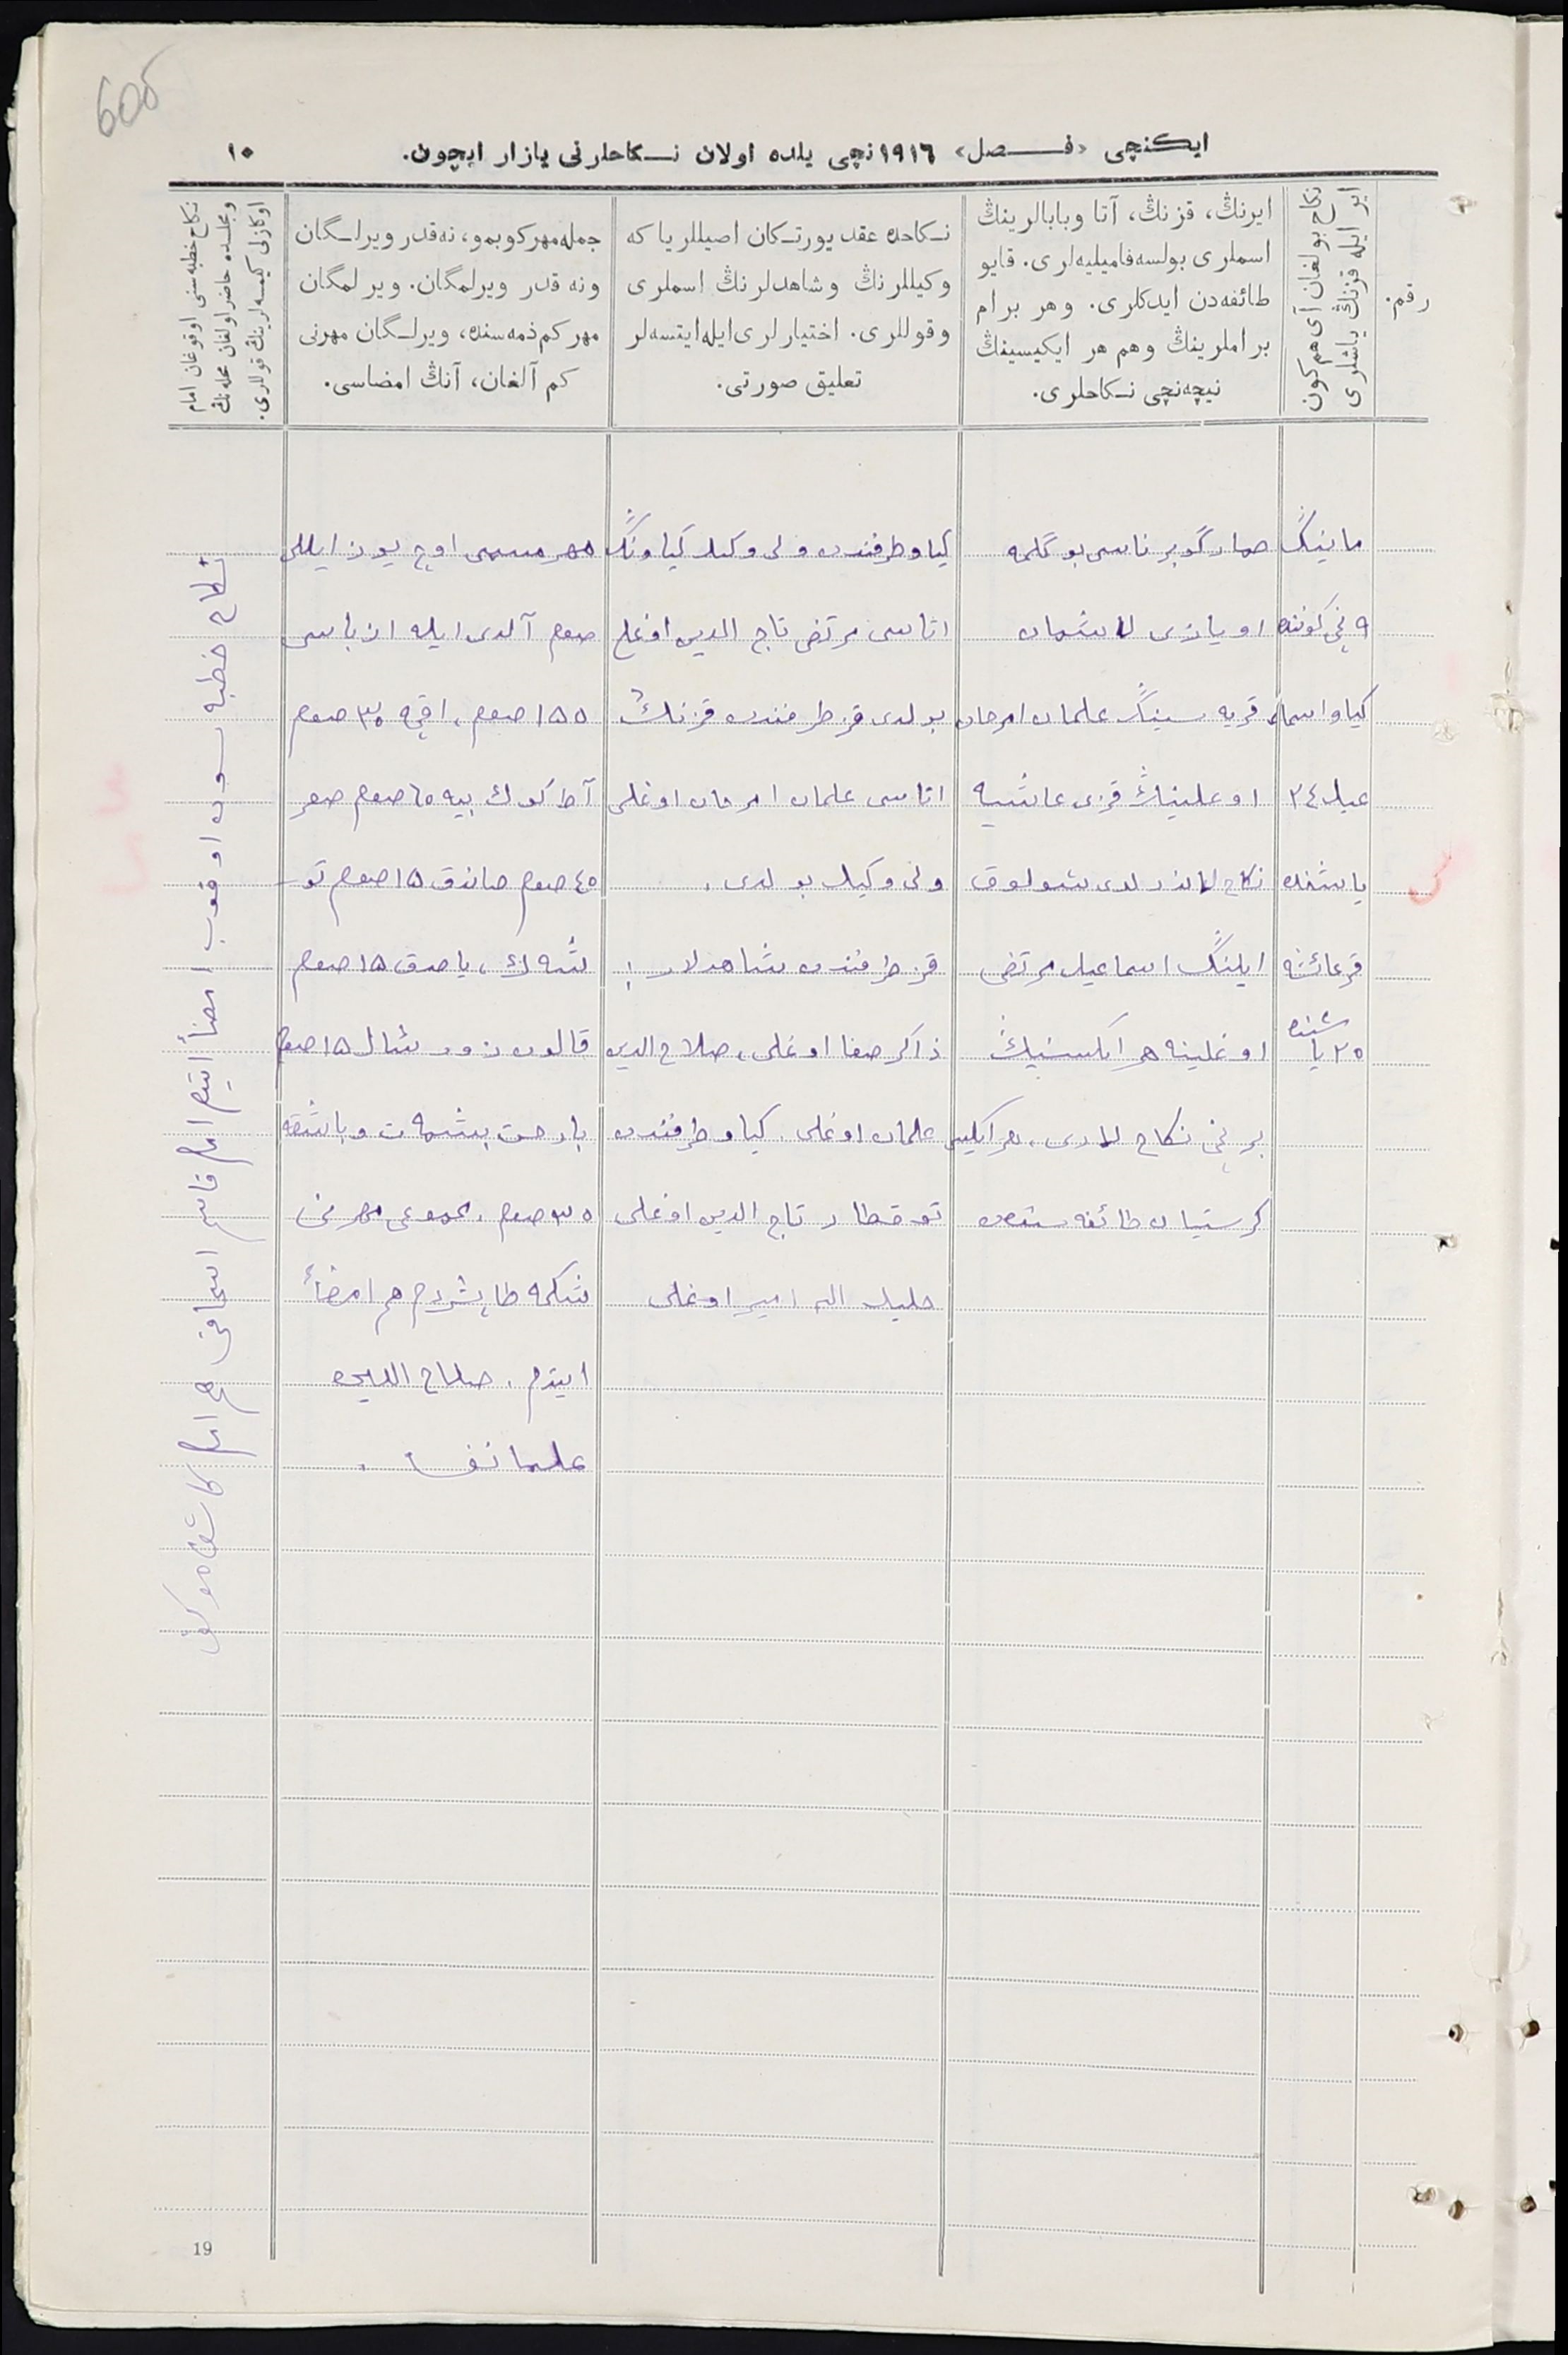 605
ایکنچی «فـصل» ١٩١٦ نچی یلده اولان نـکاحلرنی یازار ایچون.
١٠
رقم.
نکاح بولغان آی هم کون
ایر ایله قزنڭ یاشلری
ایرنڭ، قزنڭ، آتا وبابالرینڭ
اسملری بولسه فامیلیه‌لری. قایو
طائفه‌دن ایدکلری. وهر برام
براملرینڭ وهم هر ایکیسینڭ
نیچه‌نچی نـکاحلری.
نـکاحده عقد یورتـکان اصیللر یا که
وکیللرنڭ وشاهدلرنڭ اسملری
وقوللری. اختیارلری ایله ایتسه‌لر
تعلیق صورتی.
جمله مهر کوبمو، نه‌قدر ویرلـگان
ونه قدر ویرلمگان. ویرلمگان
مهر کم ذمه‌سنده، ویرلـگان مهرنی
کم آلغان، آنڭ امضاسی.
نکاح خطبه سنی اوقوغان امام
ومجلسده حاضر اولغان محله نڭ
اوکازنلی کیمسه لرینڭ قوللری.
ماینڭ
٩ نچی کوننده
کیاو اسما
عیل ٢٤
یاشنده
قز عائشه
٢٥ یا
شنده
صمار گوبرناسی بوگلمه
اویازی
قریه سینڭ علمان امرخان
اوغلینڭ قزی عائشه
نکاح شولوق
ایلنڭ اسماعیل مرتضی
اوغلینه هر ایکسینڭ
برنچی نکاح لاری، هر ایکیسی
کرستیان طائفه سندن
کیاو طرفندن ولی وکیل کیاونڭ
اتاسی مرتضی تاج الدین اوغلی
بولدی قز طرفندن قزنڭ
اتاسی علمان امرخان اوغلی
ولی وکیل بولدی.
قز طرفندن شاهدلار:
ذاکر صفا اوغلی، صلاح الدین
علمان اوغلی. کیاو طرفندن
توقطار تاج الدین اوغلی
خلیل الله امیر اوغلی
مهر مسمی اوچ یوز ایللی
صوم آلدی ایله
١٥٥ صوم، اقچه ٣٠ صوم
آط کوك بیه ٦٥ صوم صغر
٤٥ صوم صاندق ١٥ صوم تو
شه‌ك، یاصدق ١٥ صوم
زور شال ١٥ صوم
بارحت بشمه‌ت وباشقه
٣٥ صوم. مجموعی مهرنی
طابشردم هم امضأ
ایتدم. صلاح الدین
علمانف.
نکاح خطبه سون اوقوب امضأ ایتدم امام قاسم
19